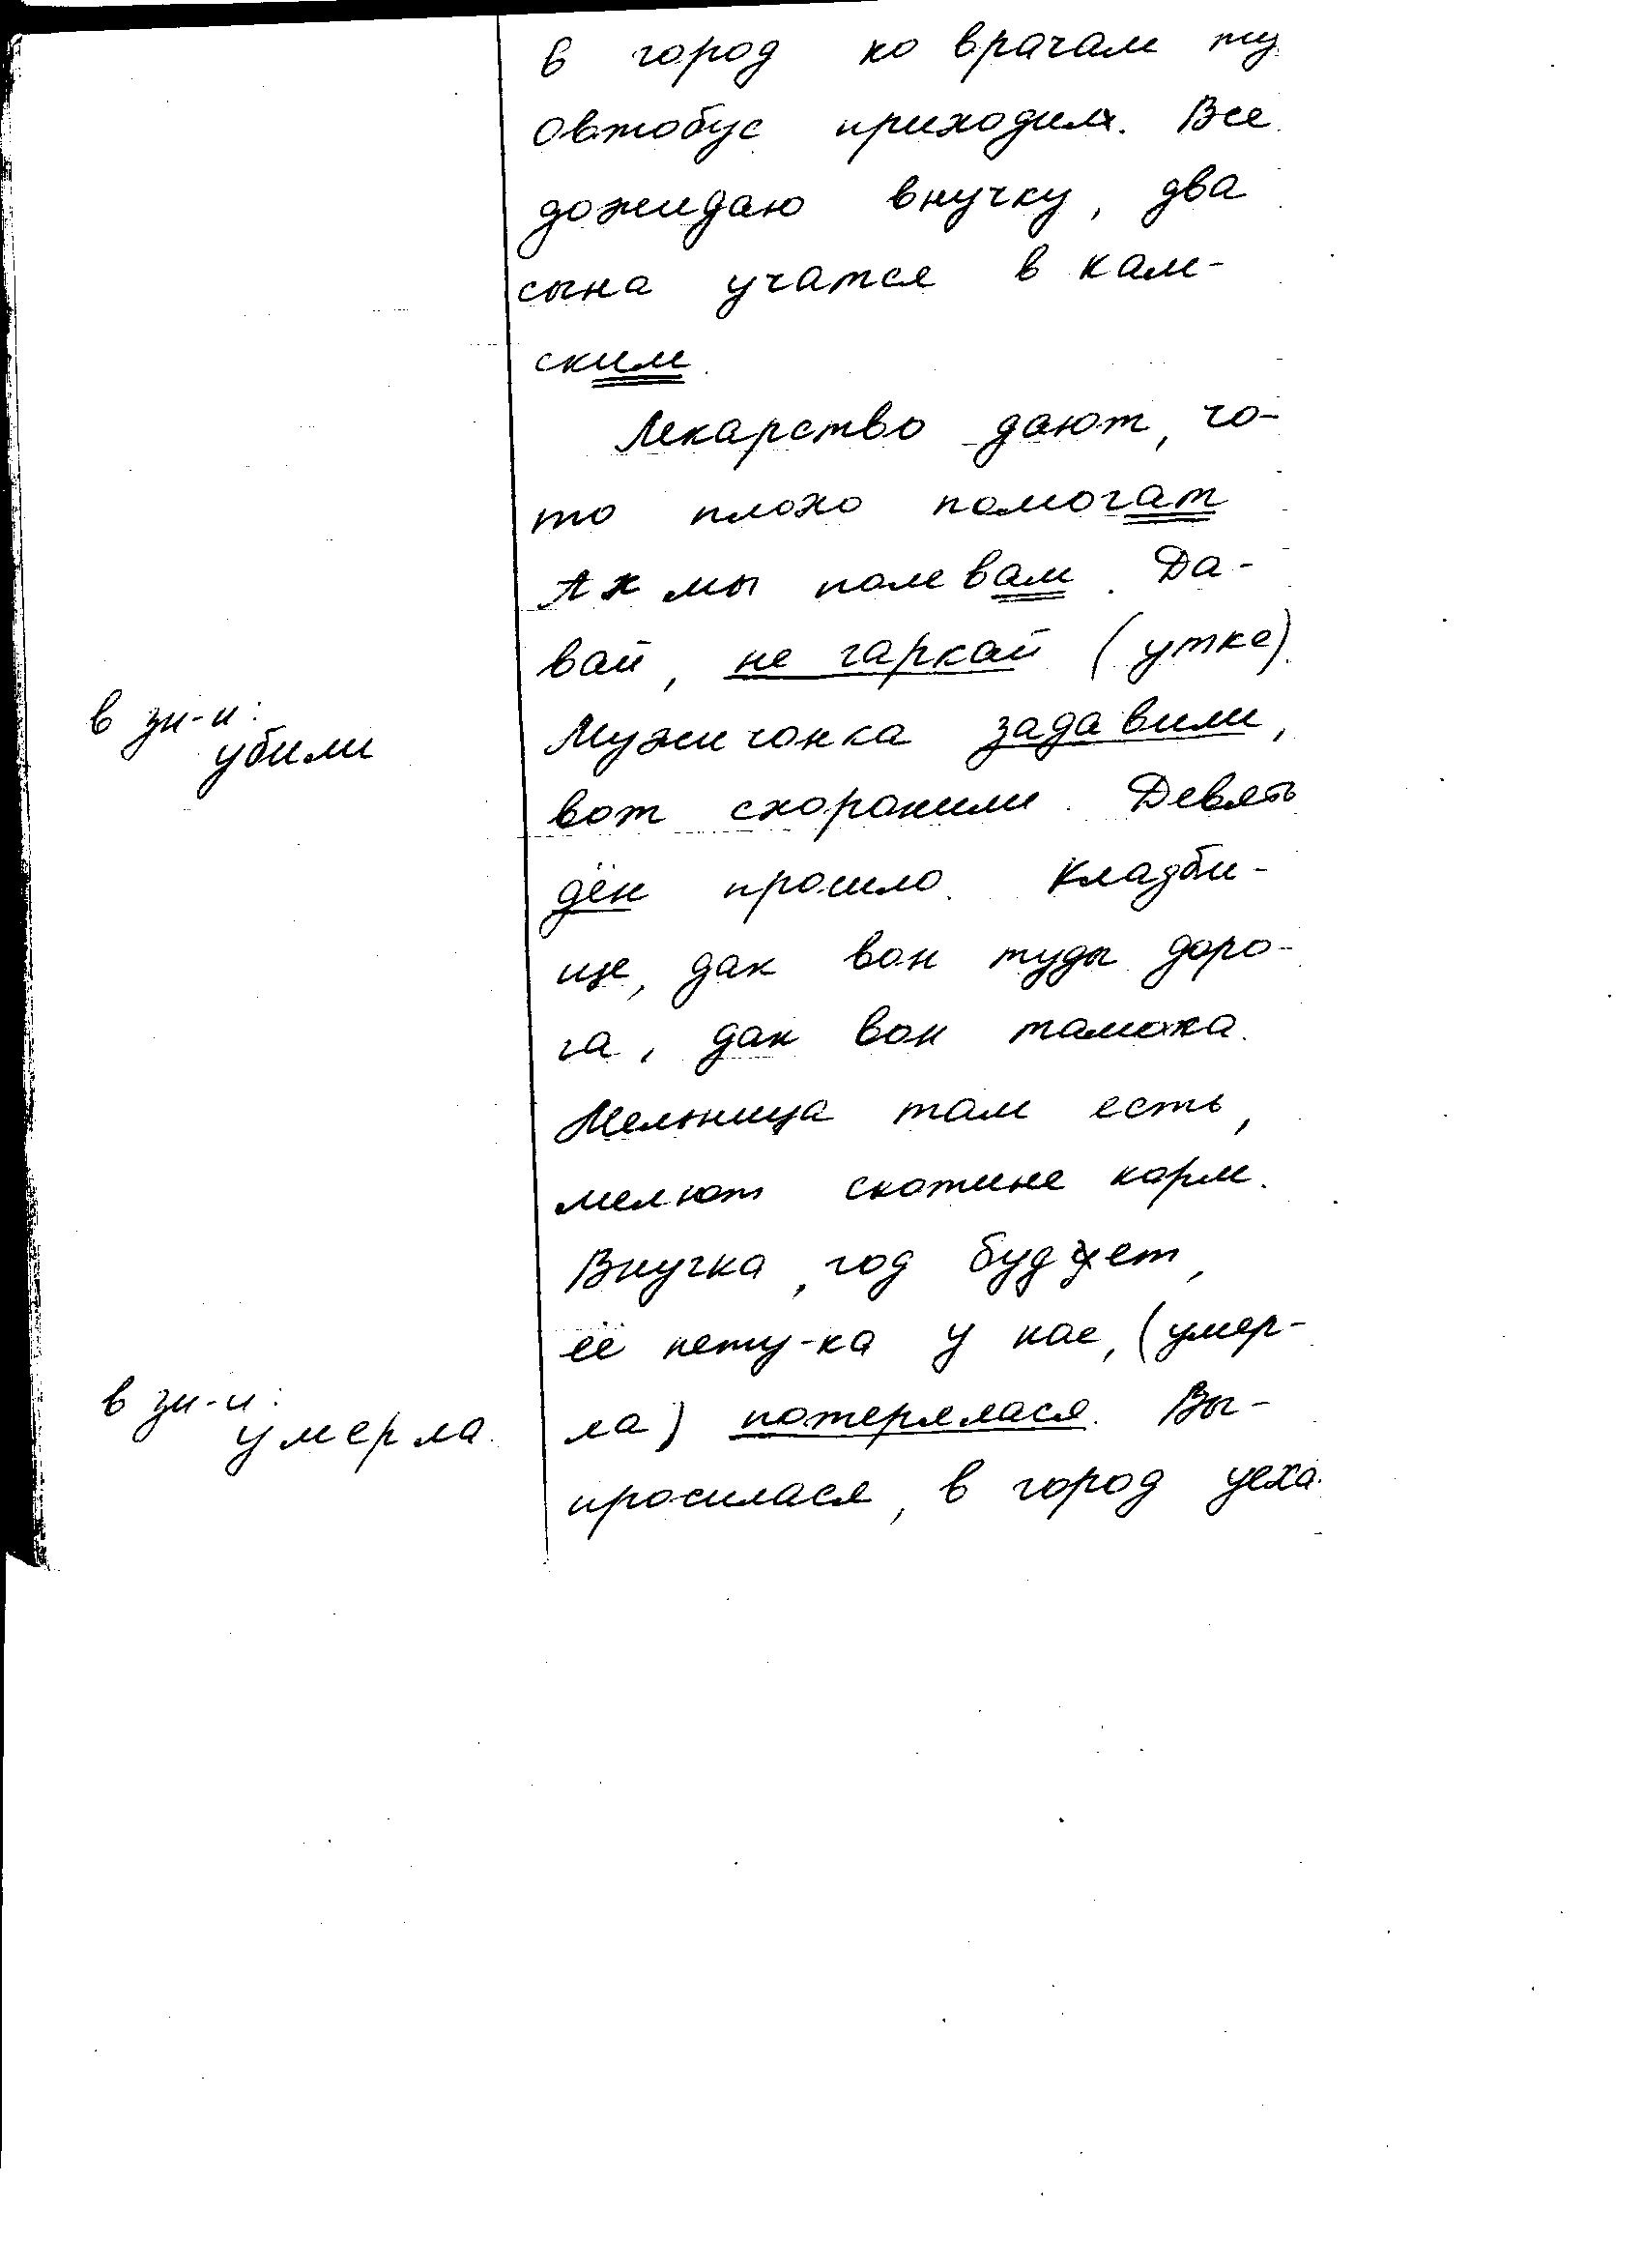 в город ко врачам ту
овтобус приходил. Все
дожидаю внучку, два
сына учатся в кам-
ским.
Лекарство дают, чо-
то плохо помогат
Ак мы полевам. Да-
вай, не гаркай (утке).
в зн-и:
убили
Мужичонка задавили,
вот схоронили. Девять
дён прошло. Кладби-
ще, дак вон туды доро-
га, дак вон тамока.
Мельница там есть,
мелют скотине корм.
Внучка, год будет,
её нету-ка у нас, (умер-
в зн-и:
умерла.
ла) потерялася. Вы-
просилася, в город уеха